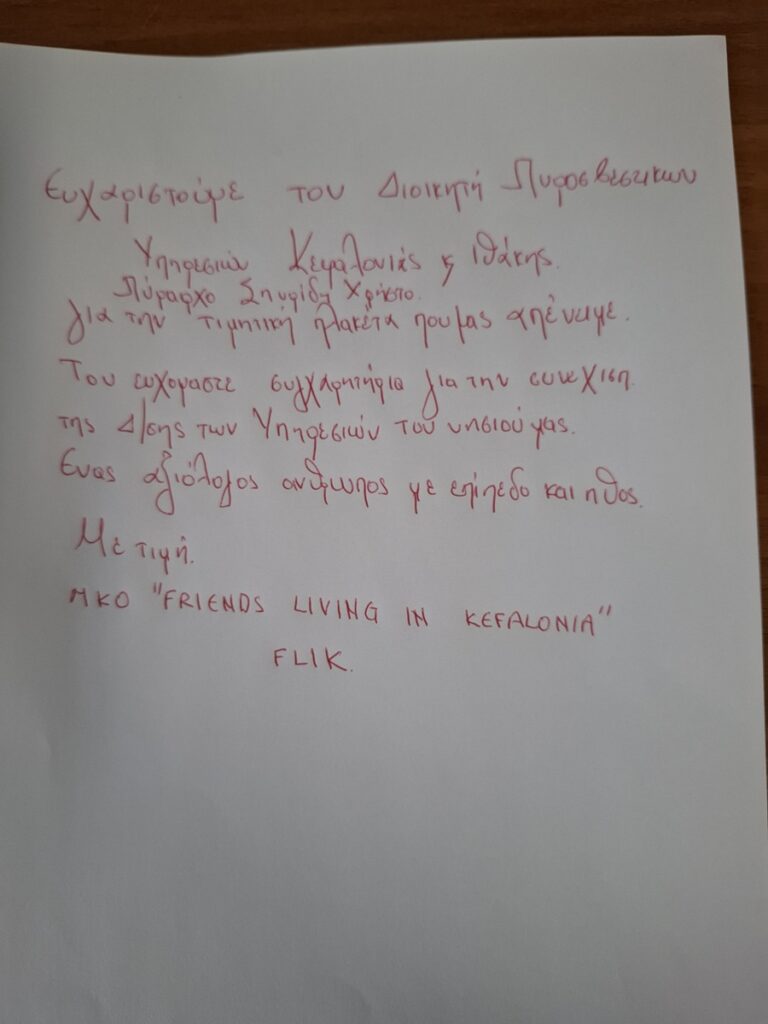 Ευχαριστούμε τον Διοικητή Πυροσβεστικων
Υπηρεσιών Κεφαλονιάς ϗ Ιθάκης.
Πύραρχο Σπυρίδη Χρήστο.
για την τιμητική πλακέτα που μας απένειμε.
Του ευχομαστε συγχαρητήρια για την συνεχιση
της Δ/σης των Υπηρεσιών του νησιού μας.
Ενας αξιόλογος ανθρωπος με επίπεδο και ηθος.
Με τιμή.
ΜΚΟ "FRIENDS LIVING IN KEFALONIA"
FLIK.